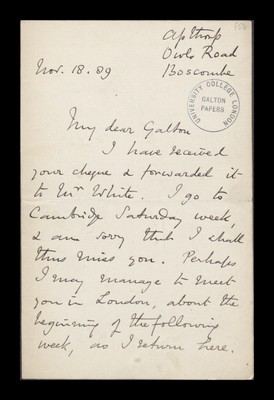 Apthorp
Owls Road
Boscombe
Nov. 18. 89
UNIVERSITY COLLEGE LONDON
GALTON
PAPERS
My dear Galton
I have received
your cheque & forwarded it
to Mr White. I go to
Cambridge Saturday week,
& am sorry that I shall
thus miss you. Perhaps
I may manage to meet
you in London, about the
beginning of the following
week, as I return here.